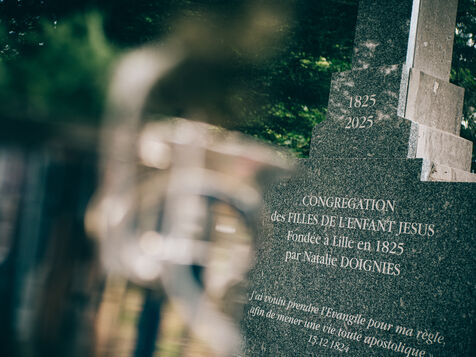 1825
2025
CONGREGATION
des FILLES DE L'ENFANT JESUS
Fondée à Lille en 1825
par Natalie DOIGNIES
J'ai voulu prendre l'Evangile pour ma règle,
afin de mener une vie toute apostolique
15.12.1824